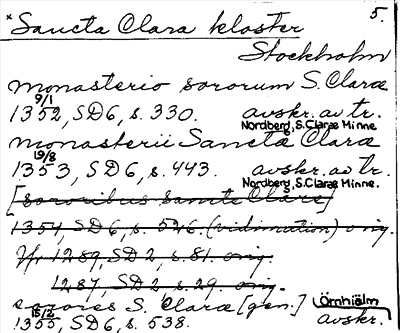 *Sancta Clara kloster 5.
Stockholm
monasterio sororum S. Claræ
9/1
1352, SD6, s. 330. avskr. av tr.
Nordberg, S. Claræ Minne
monasterii Sanctæ Claræ
19/8
1353, SD6, s. 443. avskr. av tr.
Nordberg, S. Claræ Minne.
[sororibus sancte Clare]
1354, SD6, s. 526. (vidimation) orig.
Jfr 1289, SD2, s. 81. orig.
1287, SD2, s. 29. orig.
sorores S. Claræ [gen.] Örnhiälm
15/2
1355, SD6, s. 538. avskr.